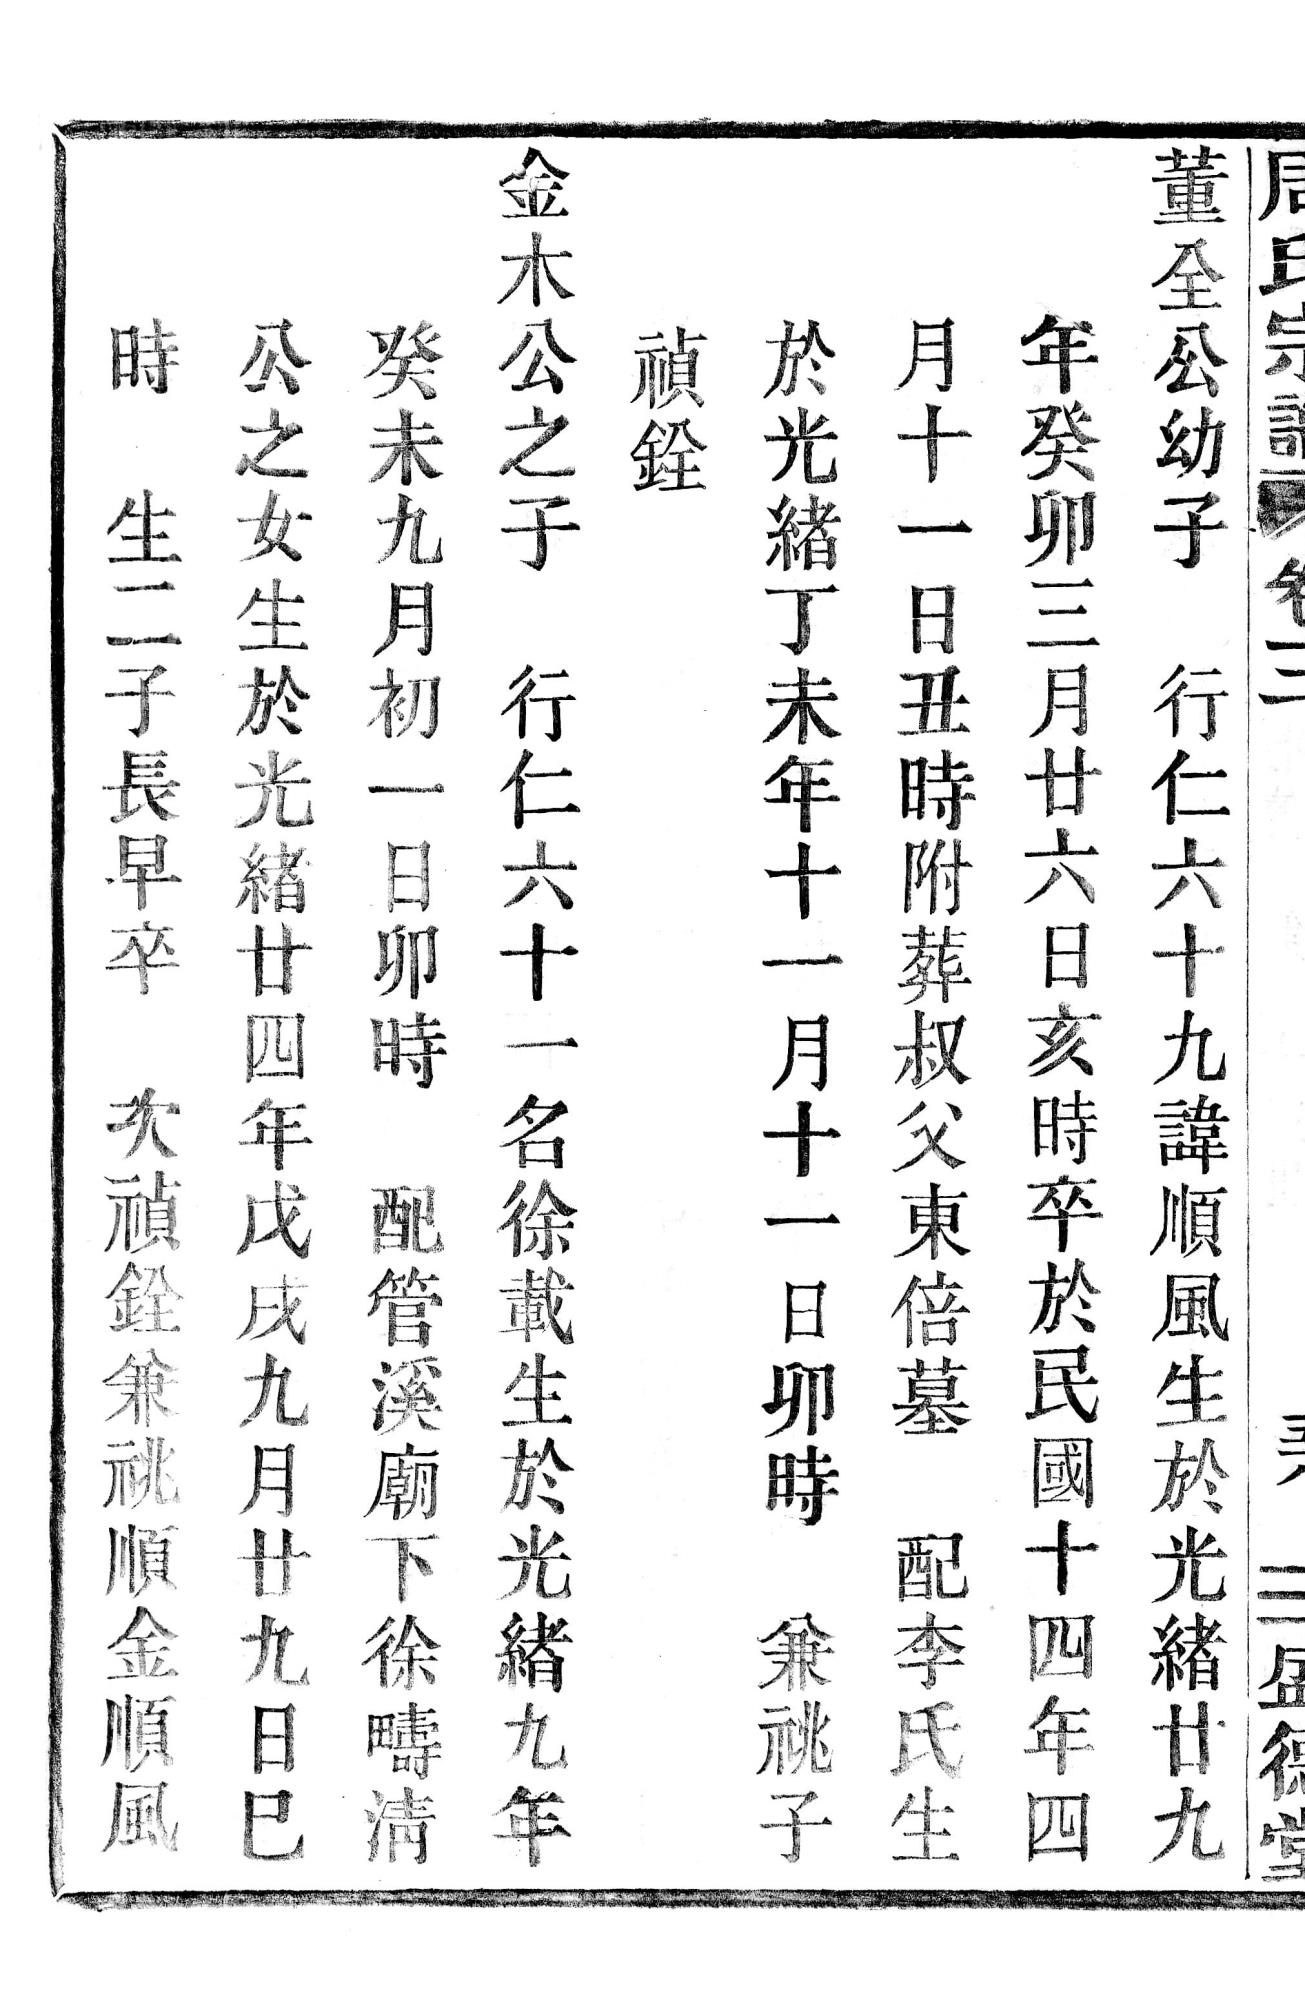 周氏宗譜 卷三 盛德堂
董全公幼子 行仁六十九諱順風生於光緒廿九
年癸卯三月廿六日亥時卒於民國十四年四
月十一日丑時附葬叔父東倍墓 配李氏生
於光緒丁未年十一月十一日卯時 兼祧子
禎銓
金木公之子 行仁六十一名徐載生於光緒九年
癸未九月初一日卯時 配管溪廟下徐疇清
公之女生於光緒廿四年戊戌九月廿九日巳
時 生二子長早卒 次禎銓兼祧順金順風